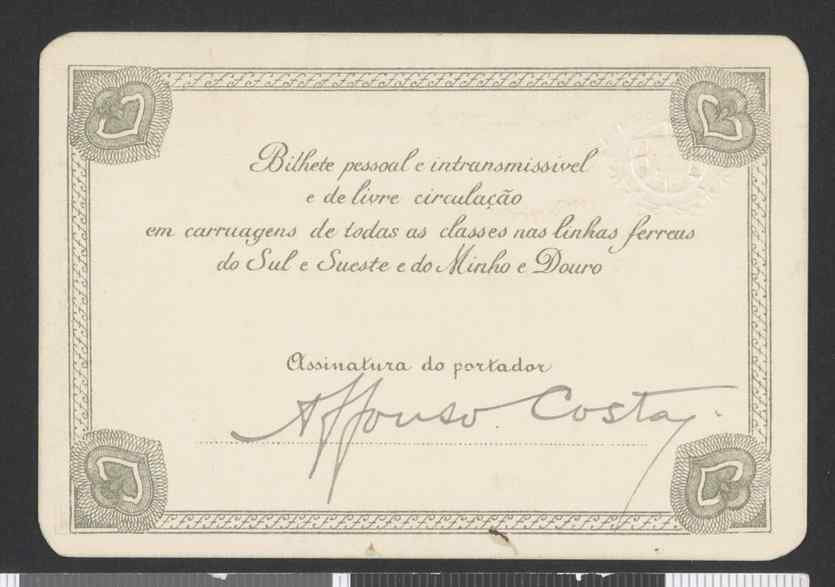 Bilhete pessoal e intransmissivel
e de livre circulação
em carruagens de todas as classes nas linhas ferreas
do Sul e Sueste e do Minho e Douro
Assinatura do portador
Affonso Costa